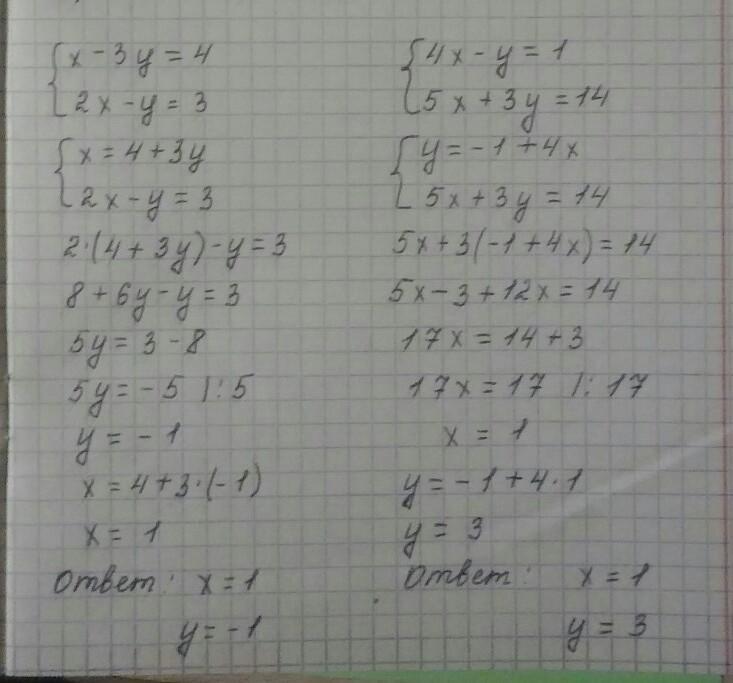 x - 3y = 4
2x - y = 3
x = 4 + 3y
2x - y = 3
2·(4 + 3y) - y = 3
8 + 6y - y = 3
5y = 3 - 8
5y = -5 |: 5
y = -1
x = 4 + 3·(-1)
x = 1
Ответ: x = 1
y = -1
4x - y = 1
5x + 3y = 14
y = -1 + 4x
5x + 3y = 14
5x + 3(-1 + 4x) = 14
5x - 3 + 12x = 14
17x = 14 + 3
17x = 17 |: 17
x = 1
y = -1 + 4·1
y = 3
Ответ: x = 1
y = 3